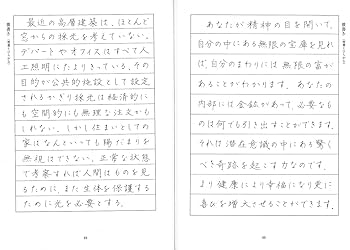 最近の高層建築は、ほとんど
空からの採光を考えていない。
デパートやオフィスはすべて人
工照明にたよりきっている。その
目的が公共的施設として設定
されるかぎり採光は経済的に
も空間的にも無理な注文かも
しれない。しかし住まいとしての
家はなんといっても陽だまりを
無視はできない。正常な状態
で考察すれば人間はものを見
るために、また生体を保護する
ために光を必要とする。
あなたが精神の目を開いて、
自分の中にある無限の宝庫を見れ
ば、自分のまわりには無限の富が
あることがわかります。あなたの
内部には金鉱があって、必要なも
のは何でも引き出すことができます。
それは潜在意識の中にある驚く
べき奇跡を起こす力なのです。
より健康により幸福になり更に
喜びを増大させることができます。